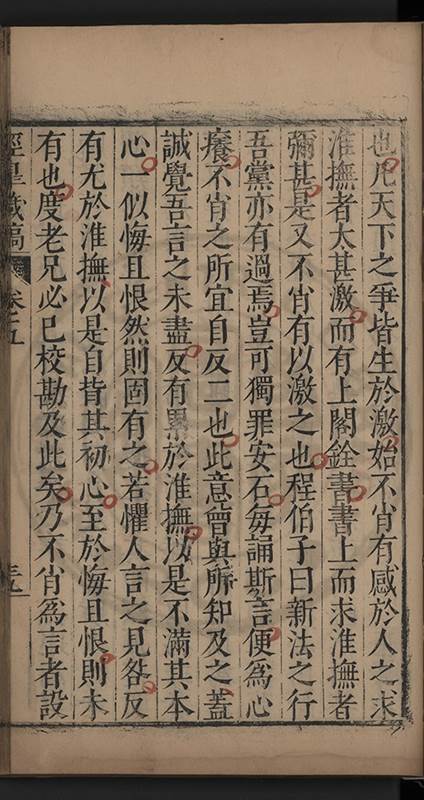 也凡天下之爭皆生於激始不肖有感於人之求
淮撫者太甚激而有上閣銓書書上而求淮撫者
彌甚是又不肖有以激之也程伯子曰新法之行
吾黨亦有過焉豈可獨罪安石每誦斯言便為心
癢不肖之所宜自反二也此意曾與所知及之蓋
誠覺吾言之未盡反有累於淮撫以是不滿其本
心一似悔且恨然則固有之若懼人言之見咎反
有尤於淮撫以是自背其初心至於悔且恨則未
有也度老兄必已校勘及此矣乃不肖為言者設
涇皐藏稿 卷之五 三九